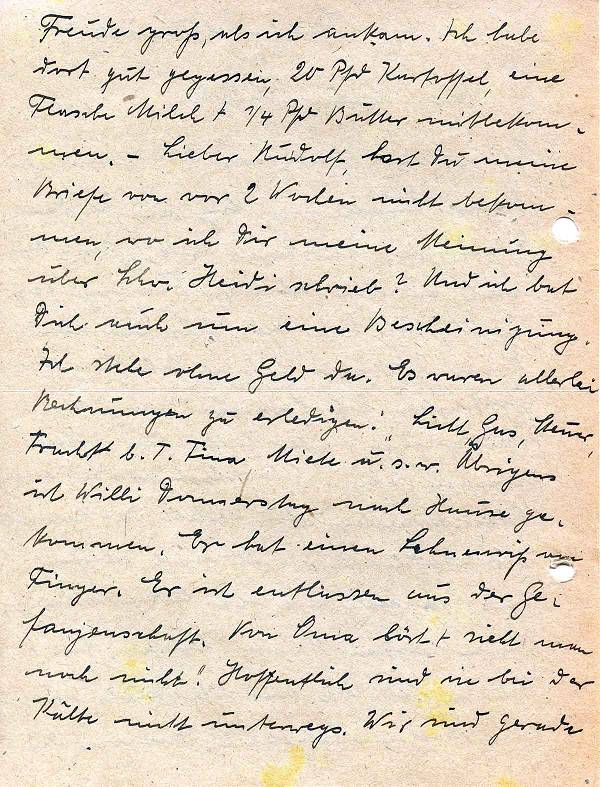 Freude groß, als ich ankam. Ich habe
dort gut gegessen, 20 Pfd Kartoffel, eine
Flasche Milch + 1/4 Pfd Butter mitbekom-
men. – Lieber Rudolf, hast Du meine
Briefe von vor 2 Wochen nicht bekom-
men, wo ich Dir meine Meinung
über Heidi schrieb? Und ich bat
Dich auch um eine Bescheinigung.
Ich stehe ohne Geld da. Es waren allerlei
Rechnungen zu erledigen: Licht, Gas, Steuer,
b. T. Tina Miete u.s.w. Übrigens
ist Willi Donnerstag nach Hause ge-
kommen. Er hat einen Sehnenriß am
Finger. Er ist entlassen aus der Ge-
fangenschaft. Von Oma hört + sieht man
noch nicht! Hoffentlich sind sie bei der
Kälte nicht unterwegs. Wir sind gerade